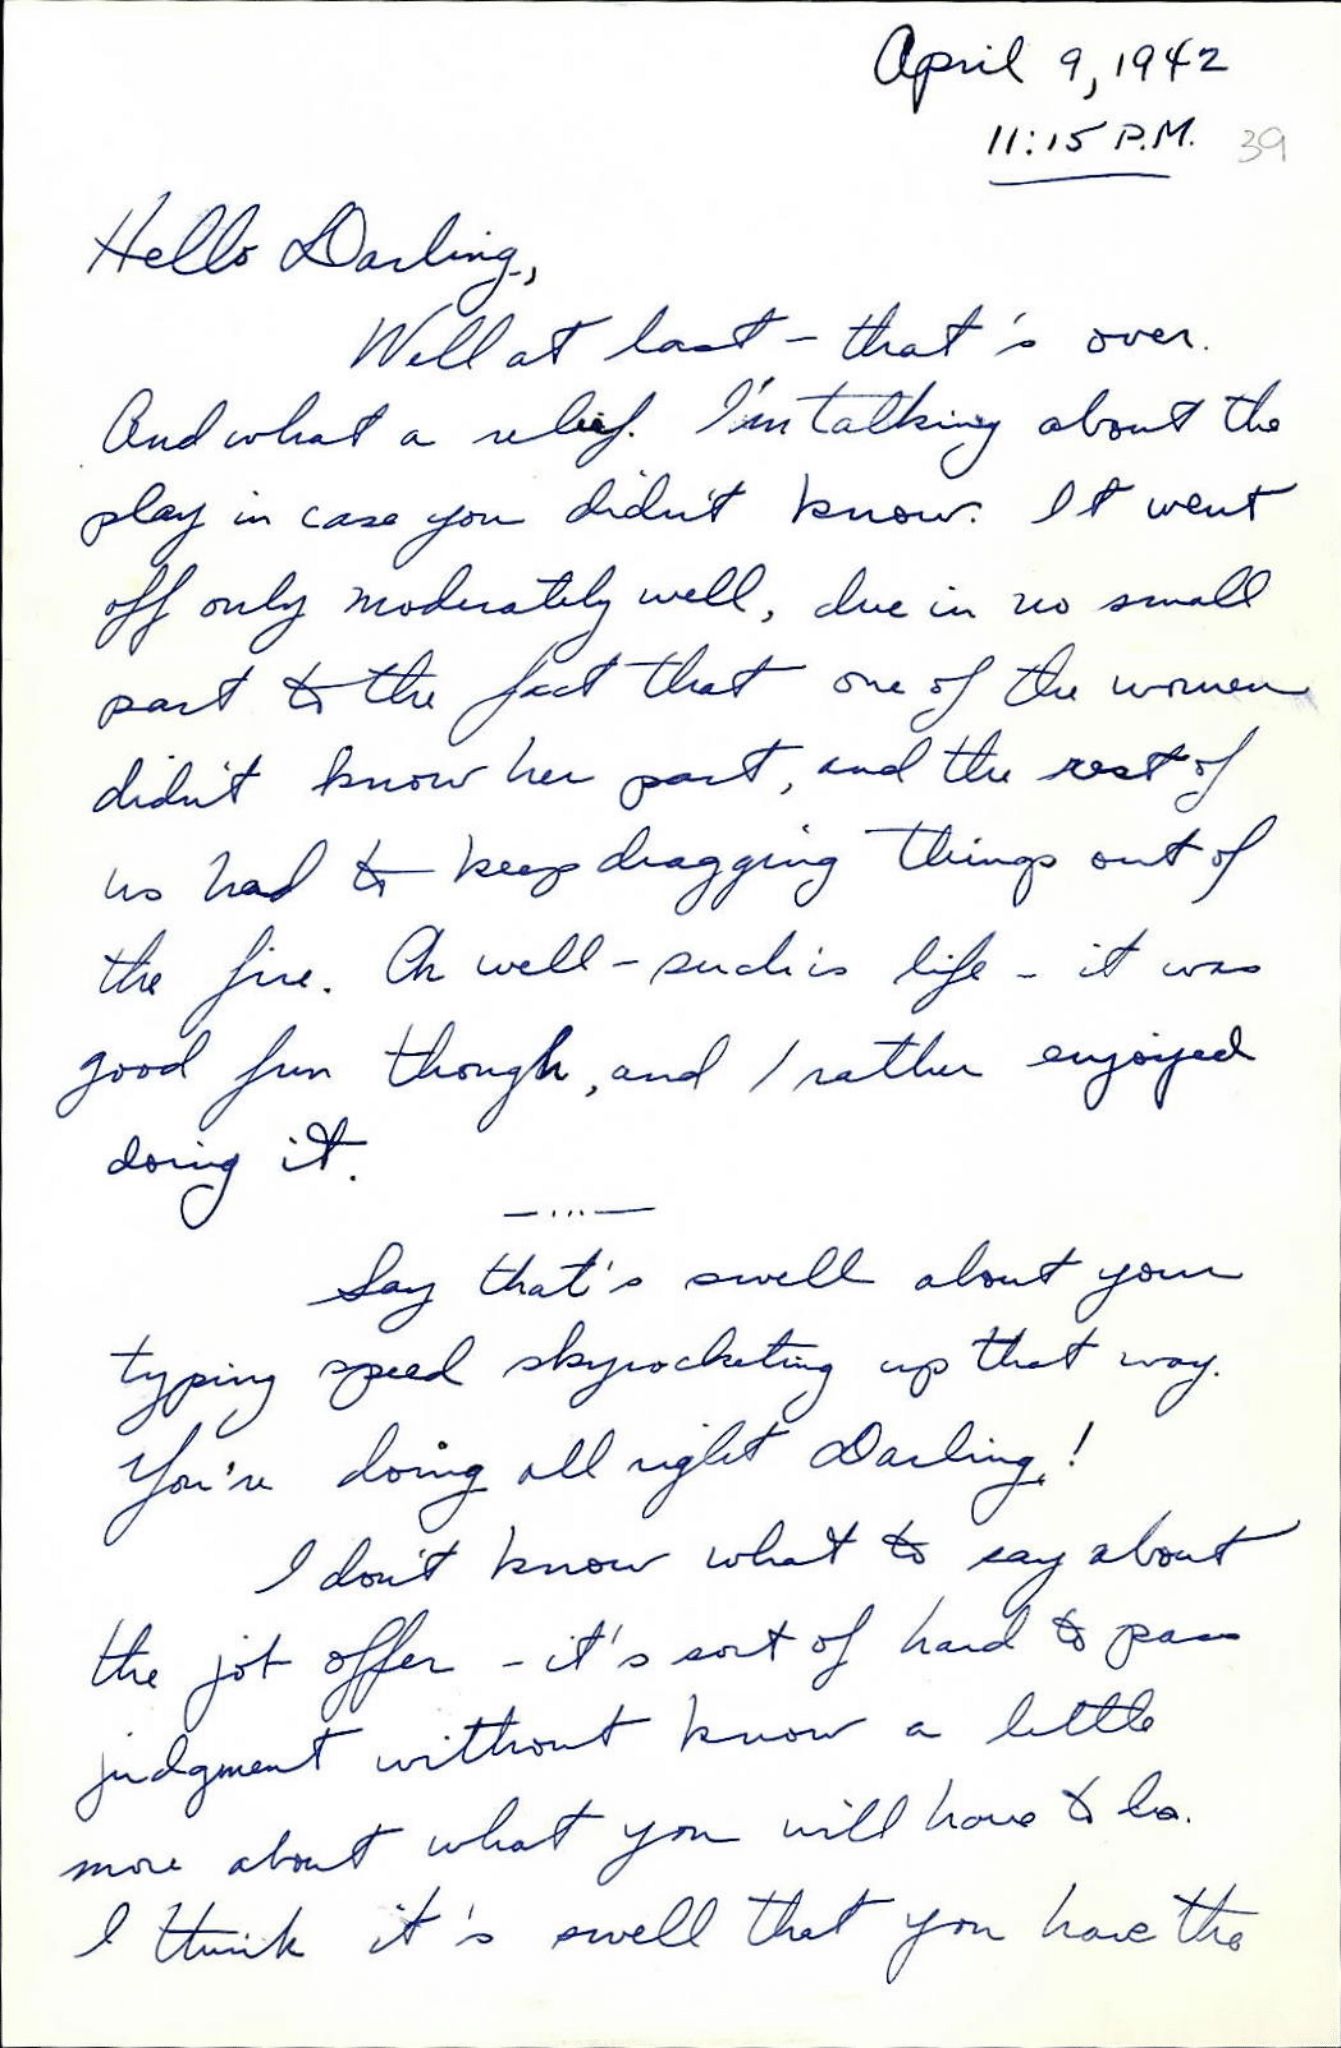 April 9, 1942
11:15 P.M. 39
Hello Darling,
Well at last - that's over.
And what a relief. I'm talking about the
play in case you didn't know. It went
off only moderately well, due in no small
part to the fact that one of the women
didn't know her part, and the rest of
us had to keep dragging things out of
the fire. Oh well - such is life - it was
good fun though, and I rather enjoyed
doing it.
—...—
Say that's swell about your
typing speed skyrocketing up that way.
You're doing all right Darling!
I don't know what to say about
the job offer - it's sort of hard to pass
judgment without know a little
more about what you will have to do.
I think it's swell that you have the